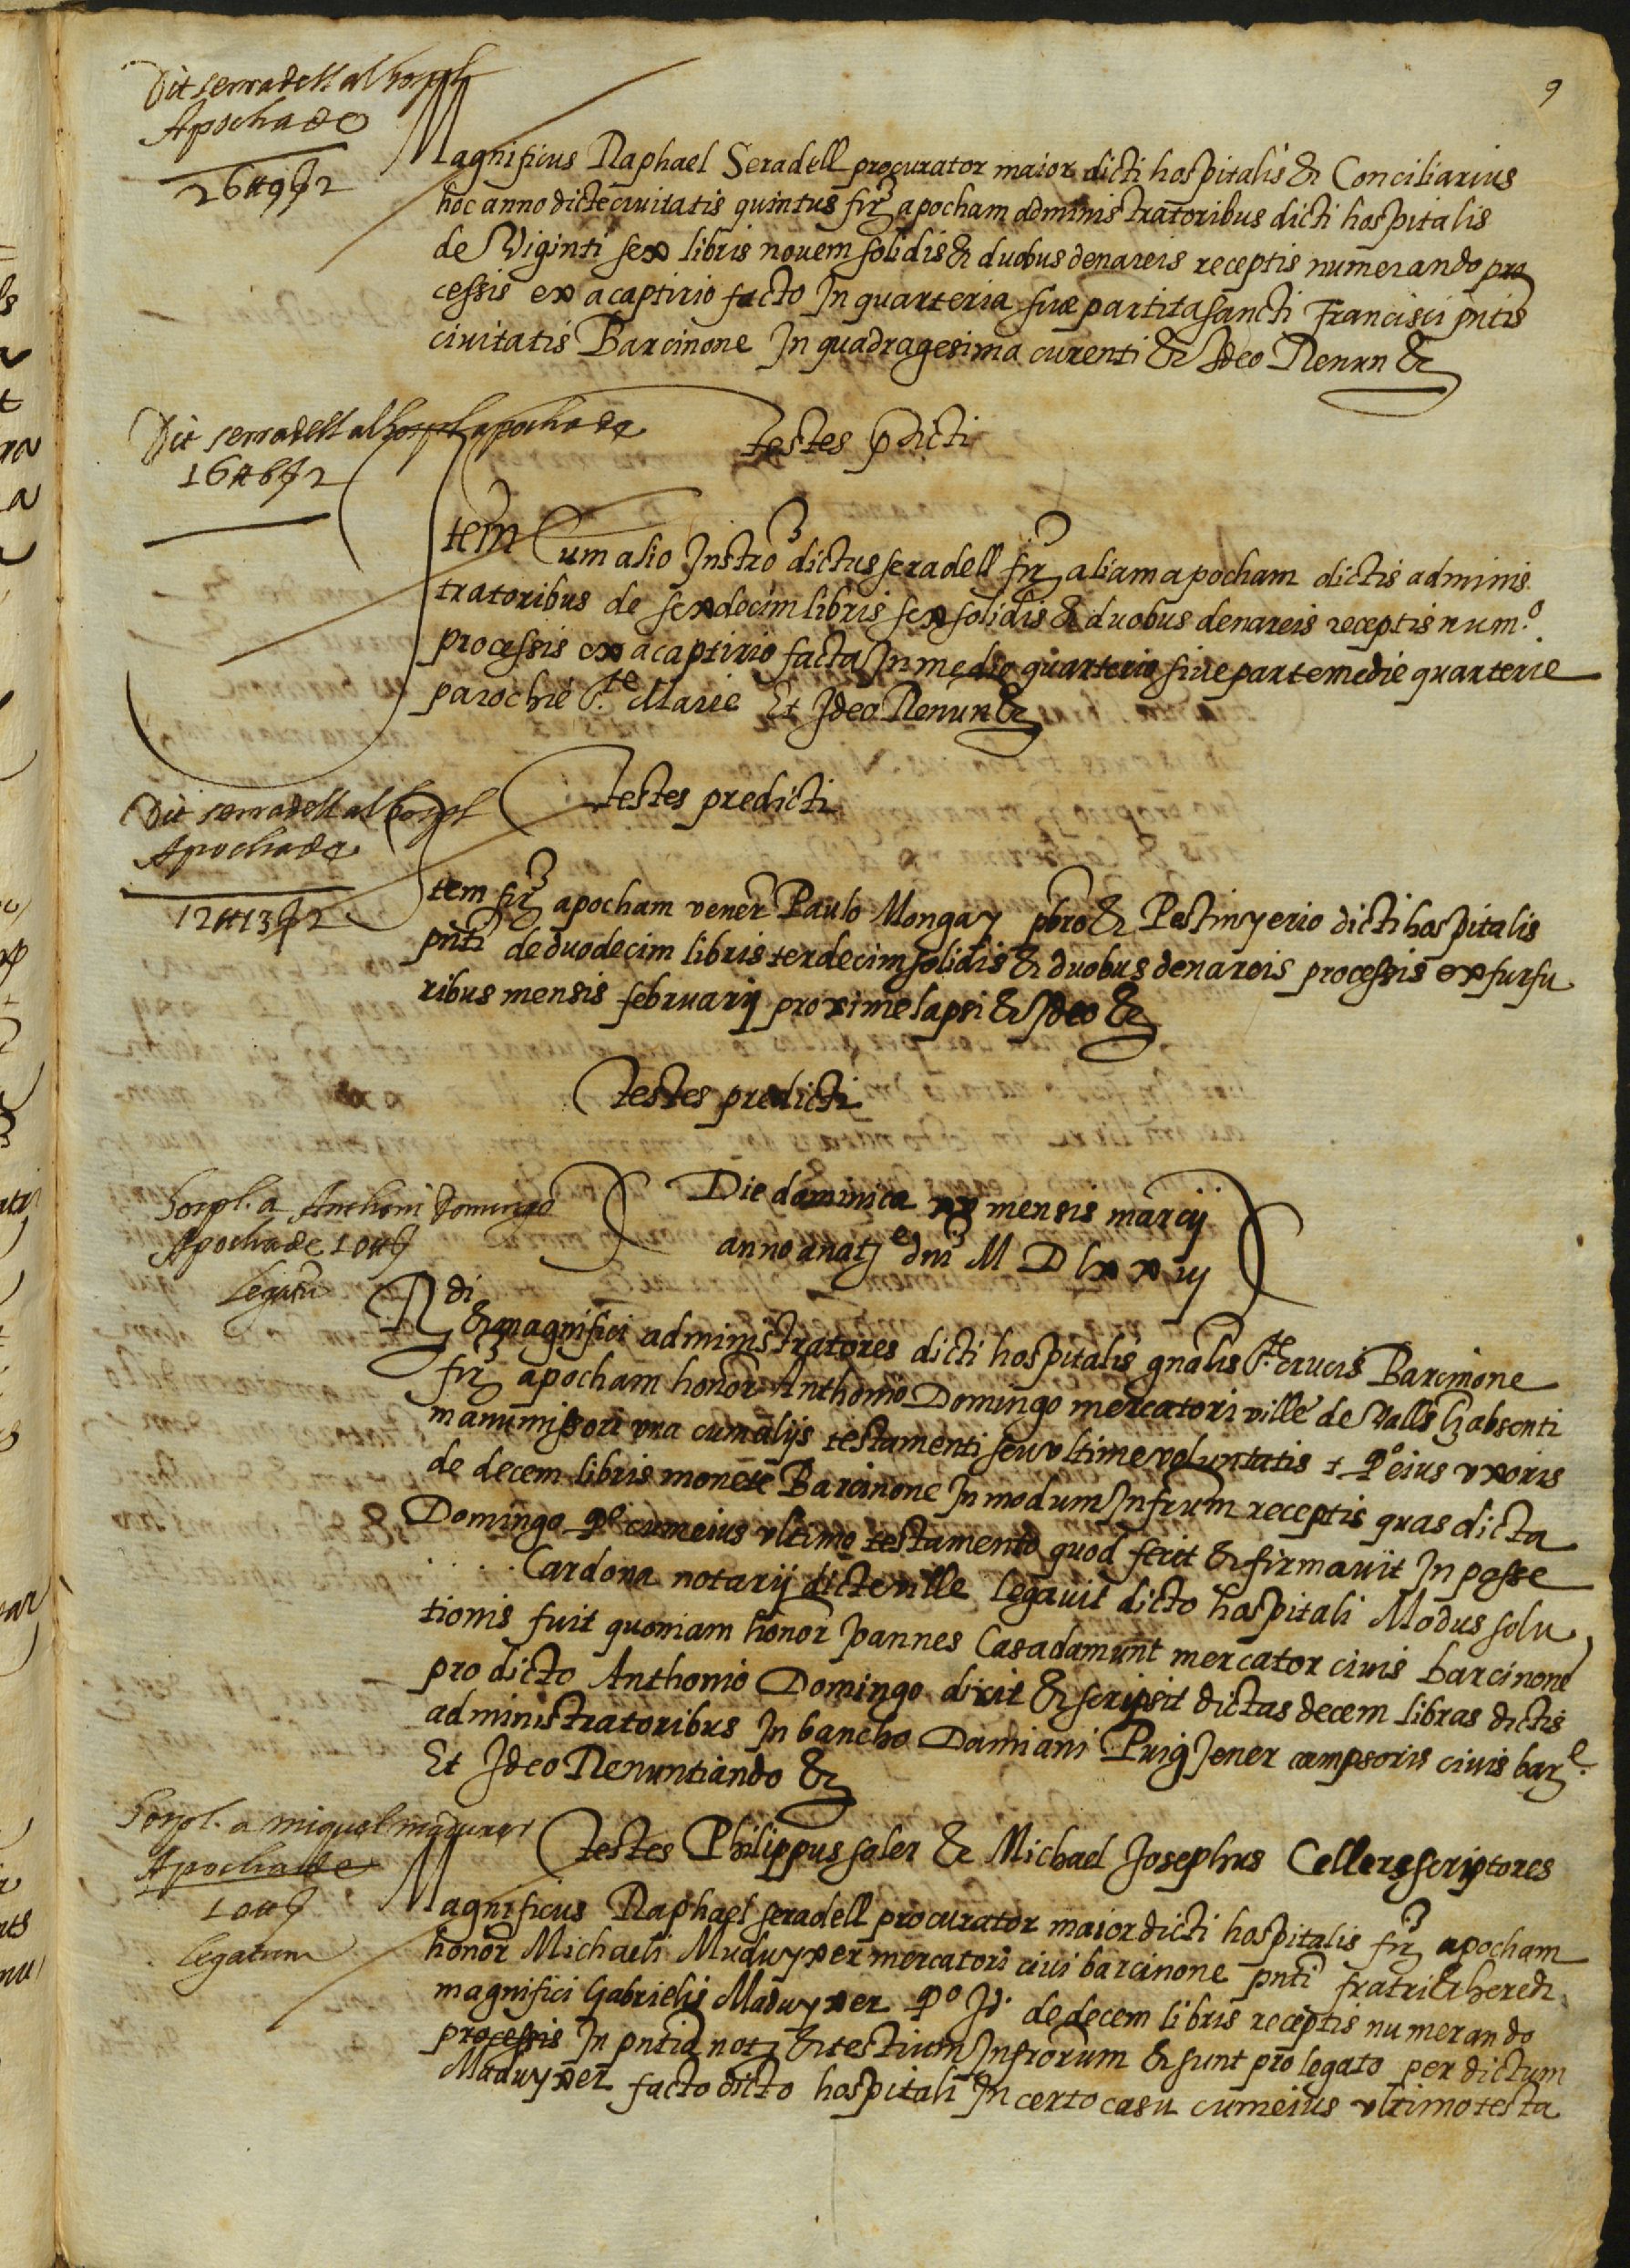 9
Dit serradell al hospl
Apocha de
26 ℔ 9 ß 2
Magnificus Raphael Seradell procurator maior dicti hospitalis & Conciliarius
hoc anno dicte civitatis quintus fir apocham administratoribus dicti hospitalis
de Viginti sex libris novem solidis & duobus denareis receptis numerando pro
cessis ex acaptirio facto In quarteria sive partita sancti Francisci pntis
civitatis Barcinone In quadragesima curenti & Ideo Renun &
Dit serradell al hospl apocha de
16 ℔ 6 ß 2
testes pdicti
Item Cum alio Instro dictus seradell fir aliam apocham dictis adminis
tratoribus de sexdecim libris sex solidis & duobus denareis receptis num.º
processis ex acaptirio facta In medio quarterio sive parte medie quarterie
parochie S.te Marie Et Ideo Renun &
testes predicti
Dit serradell al hospl
Apocha de
12 ℔ 13 ß 2
Item fir apocham vener Paulo Mongay pbro & Pestinyerio dicti hospitalis
pnti de duodecim libris terdecim solidis & duobus denareis processis ex furfu
ribus mensis februarij proxime lapsi & Ideo &
testes predicti
hospl. a Anthoni Domingo
Apocha de 10 ℔ ß
legatu
Die dominica xx mensis marcij
anno a nat e dni M D lxx iij
Rdi & magnifici administratores dicti hospitalis gnalis S.te crucis Barcinone
fir apocham honor Anthonio Domingo mercatori ville de Valls absenti
manumissori vna cum alijs testamenti seu vltime voluntatis + qº eius vxoris
de decem libris monete Barcinone In modum Infrum receptis quas dicta
Domingo qº cum eius vltimo testamento quod fecit & firmavit In posse
. . . . Cardona notarij dicte ville legavit dicto hospitali Modus solu
tionis fuit quoniam honor Joannes Casadamunt mercator civis barcinone
pro dicto Anthonio Domingo dixit & scripsit dictas decem libras dictis
administratoribus In bancho Damiani Puig Jener campsoris civis bar e.
Et Ideo Renuntiando &
testes Philippus soler & Michael Josephus Cellers scriptores
hospl. a miquel
Apocha de
10 ℔ ß
legatum
Magnificus Raphael seradell procurator maior dicti hospitalis fir apocham
honor Michaeli Maduyxer mercatori civi barcinone pnti fratri & heredi
magnifici Gabrielis Maduyxer qº Jº. de decem libris receptis numerando
processis In pntia not & testium Infrorum & sunt pro legato per dictum
Maduyxer facto dicto hospitali In certo casu cum eius vltimo testa